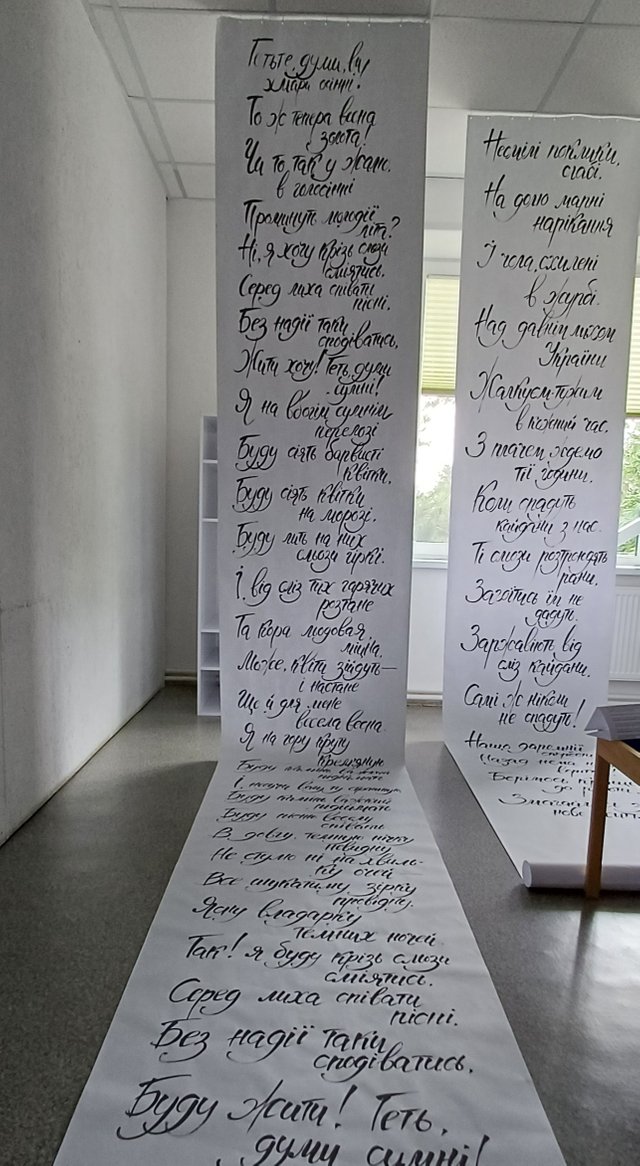 Гетьте, думи, ви
хмари осінні!
То ж тепера весна
золота!
Чи то так у жалю,
в голосінні
Проминуть молодії
літа?
Ні, я хочу крізь сльози
сміятись,
Серед лиха співати
пісні,
Без надії таки
сподіватись,
Жити хочу! Геть, думи
сумні!
Я на вбогім сумнім
перелозі
Буду сіять барвисті
квітки,
Буду сіять квітки
на морозі,
Буду лить на них
сльози гіркі.
І від сліз тих гарячих
розтане
Та кора льодовая
міцна,
Може, квіти зійдуть —
і настане
Ще й для мене
весела весна.
Я на гору круту
крем'яную
Буду камінь важкий
підіймать
І, несучи вагу ту страшную,
Буду камінь важкий
підіймать
Буду пісню веселу
співать
В довгу, темную нічку
невидну
Не стулю ні на хвиль-
ку очей
Все шукатиму зірку
провідну,
Ясну владарку
темних ночей.
Так! я буду крізь сльози
сміятись,
Серед лиха співати
пісні,
Без надії таки
сподіватись,
Буду жити! Геть,
думи сумні!
Несмілі поклики,
слабі.
На долю марні
нарікання
І чола, схилені
в журбі.
Над давнім льосом
України
Жалкуєм-тужим
в кожний час,
З плачем ждемо
тії години,
Коли спадуть
кайдани з нас.
Ті сльози розтроюдять
рани,
Загоїтись їм не
дадуть.
Заржавіють від
сліз кайдани,
Самі ж ніколи
не спадуть!
Наща даремнії
Назад нема
Берімось краще
до